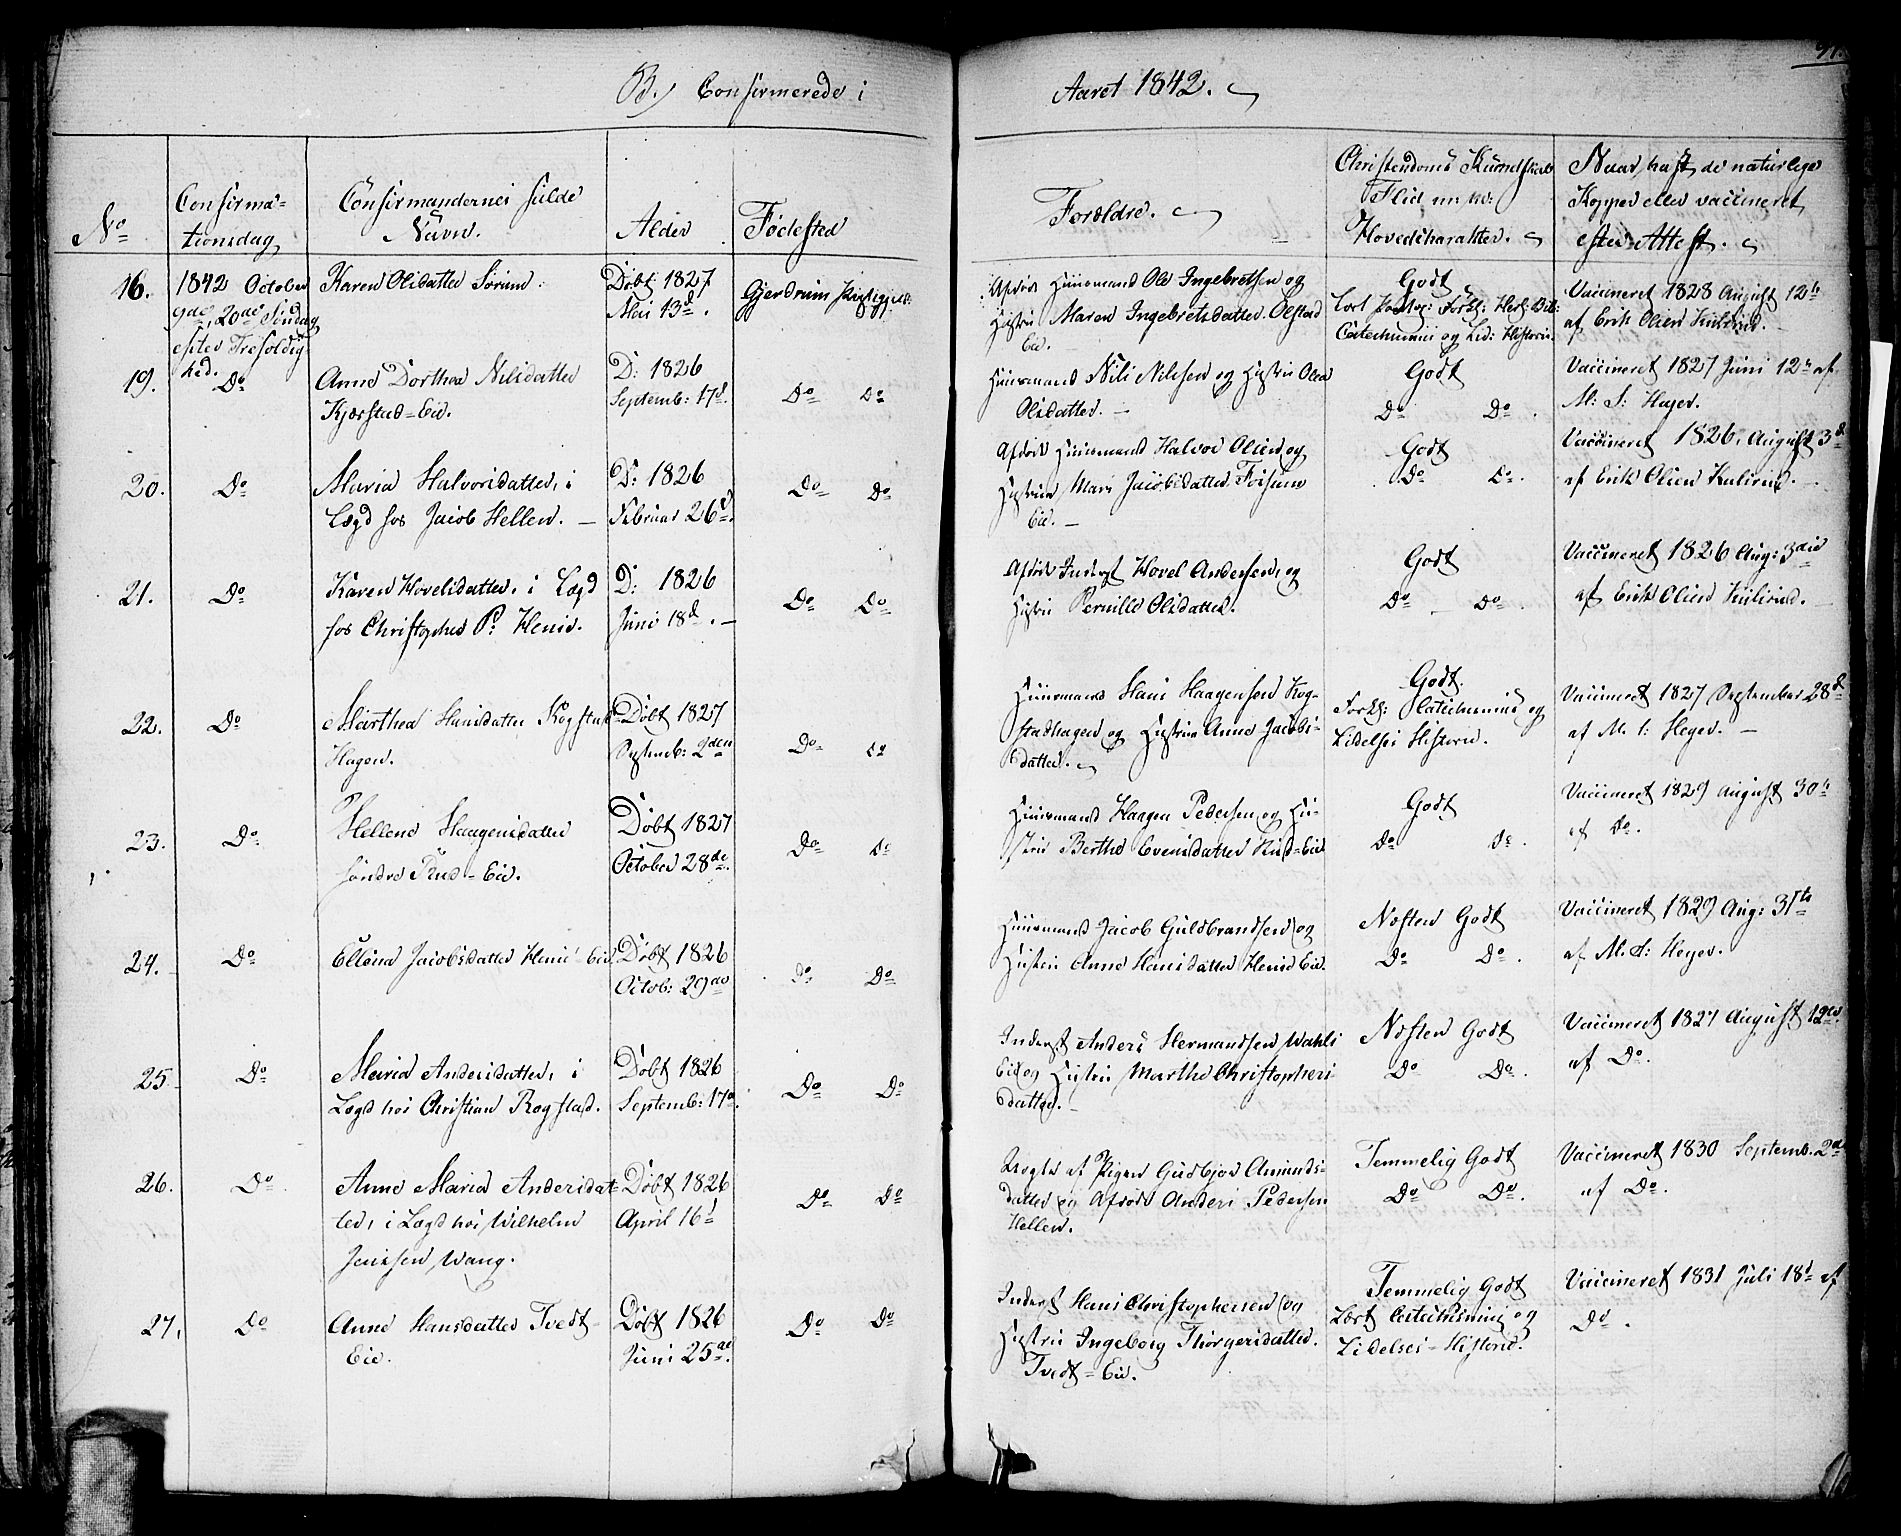 B.) Confirmerede i Aaret 1842.
No
Confirma-
tionsdag
Confirmandernes fulde
Navn.
Alder
Fødested
Forældre.
Christendoms Kundskab
Flid m. m:
Hovedcharakter.
Naar, haft de naturlige
Kopper eller vaccineret
efter Attest.
16.
1842 October
9de, 20de Søndag
efter Trefoldig-
hed.
Karen Olsdatter Sørum
Døbt: 1827
Mai 13d.
Gjerdrum
Afdøde Huusmand Ole Ingebretsen og
Hustru Maren Ingebretsdatter Olstad
Eie.
Godt
Catechismus og Lid: Historie.
Vaccineret 1828 August 12te
af Erik Olsen Kulsrud.
19.
Do
Anne Dorthea Nilsdatter
Kjærstad-Eie.
D: 1826
Septemb: 17d.
Do Do
Huusmand Nils Nilssen og Hustru Olea
Olsdatter.
Godt
Do Do.
Vaccineret 1827 Juni 12te af
M: S: Heyer.
20.
Do
Maria Halvorsdatter, i
Lægd hos Jacob Hellen.
D: 1826
Februar 26d.
Do Do
Afdøde Huusmand Halvor Olsen og
Hustrue Mari Jacobsdatter
Eie.
Godt
Do Do.
Vaccineret 1826, August 3d
af Erik Olsen Kulsrud.
21.
Do
Karen Hovelsdatter, i Lægd
hos Christopher P: Henie.
D: 1826
Juni 18d.
Do Do
Afdøde Inderst Hovel Andersen, og
Hustru Pernille Olsdatter.
Godt
Do Do.
Vaccineret 1826 Aug: 3die
af Erik Olsen Kulsrud.
22.
Do
Marthea Hansdatter Rogstad-
Hagen.
Døbt 1827
Septemb: 2den
Do Do
Huusmand Hans Haagensen Rog-
stadhagen og Hustrue Anne Jacobs-
datter.
Godt.
Forkl: Catechismus og
Lidelses Historie.
Vaccineret 1827 September 28d
af M. S: Heyer.
23.
Do
Hellene Haagensdatter
søndre Riud-Eie.
Døbt 1827
October 28de.
Do Do
Huusmand Haagen Pedersen og Hu-
stru Berthe Evensdatter Riud-Eie
Godt
Do Do.
Vaccineret 1829 August 30te
af Do.
24.
Do
Ellena Jacobsdatter Henie-Eie.
Døbt 1826
Octob: 29de
Do Do
Huusmand Jacob Guldbrandsen og
Hustru Anne Hansdatter Henie Eie.
Næsten Godt
Do Do.
Vaccineret 1829 Aug: 31te
af M. S: Heyer.
25
Do
Maria Andersdatter, i
Lægd hos Christian Rogstad.
Døbt 1826
Septemb: 17d.
Do Do
Inderst Anders Hermandsen Wahls
Eie og Hustru Marthe Christophers-
datter.
Næsten Godt
Do Do.
Vaccineret 1827 August 12te
af Do.
26.
Do
Anne Maria Andersdat-
ter, i Lægd hos Wilhelm
Jenssen Wang.
Døbt 1826
April 16d
Do Do
Uægte af Pigen Gudbjør Amunds-
datter og Afdøde Anders Pedersen
Hellen.
Temmelig Godt
Do Do.
Vaccineret 1830 Septemb. 2d
af Do.
27.
Do
Anne Hansdatter Tvedt-
Eie.
Døbt 1826
Juni 25de.
Do Do
Inderst Hans Christophersen og
Hustru Ingeborg Thorgersdatter.
Tvedt-Eie.
Temmelig Godt
Læst Catechismus og
Lidelses-Historie.
Vaccineret 1831 Juli 18d af
Do.